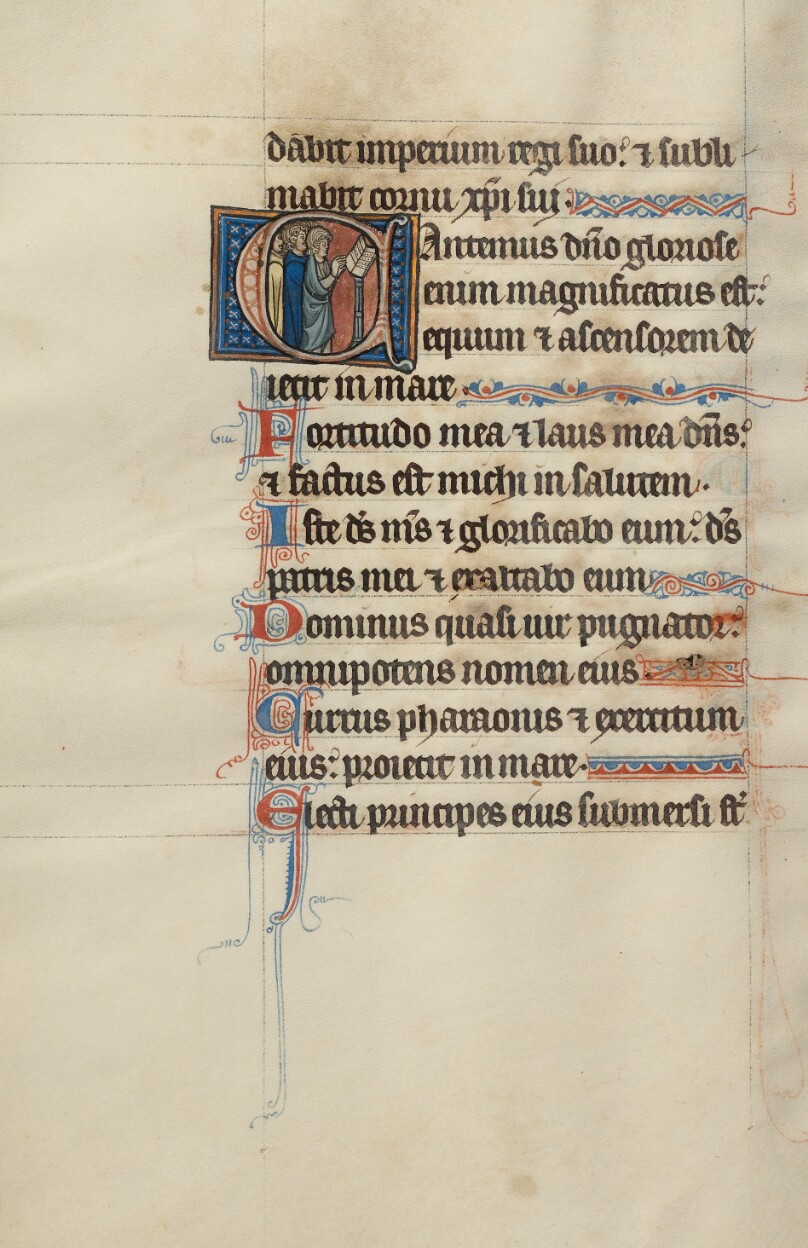 dabit imperium regi suo. ⁊ subli
mabit cornu xp̄i sui.
CAntemus dn̄o gloriose
enim magnificatus est:
equum ⁊ ascensorem de
iecit in mare.
Fortitudo mea ⁊ laus mea dn̄s:
⁊ factus est michi in salutem.
Iste ds̄ ms̄ ⁊ glorificabo eum: ds̄
patris mei ⁊ exaltabo eum
Dominus quasi uir pugnator:
omnipotens nomen eius.
Currus pharaonis ⁊ exercitum
eius: proiecit in mare.
Electi principes eius submersi st̄